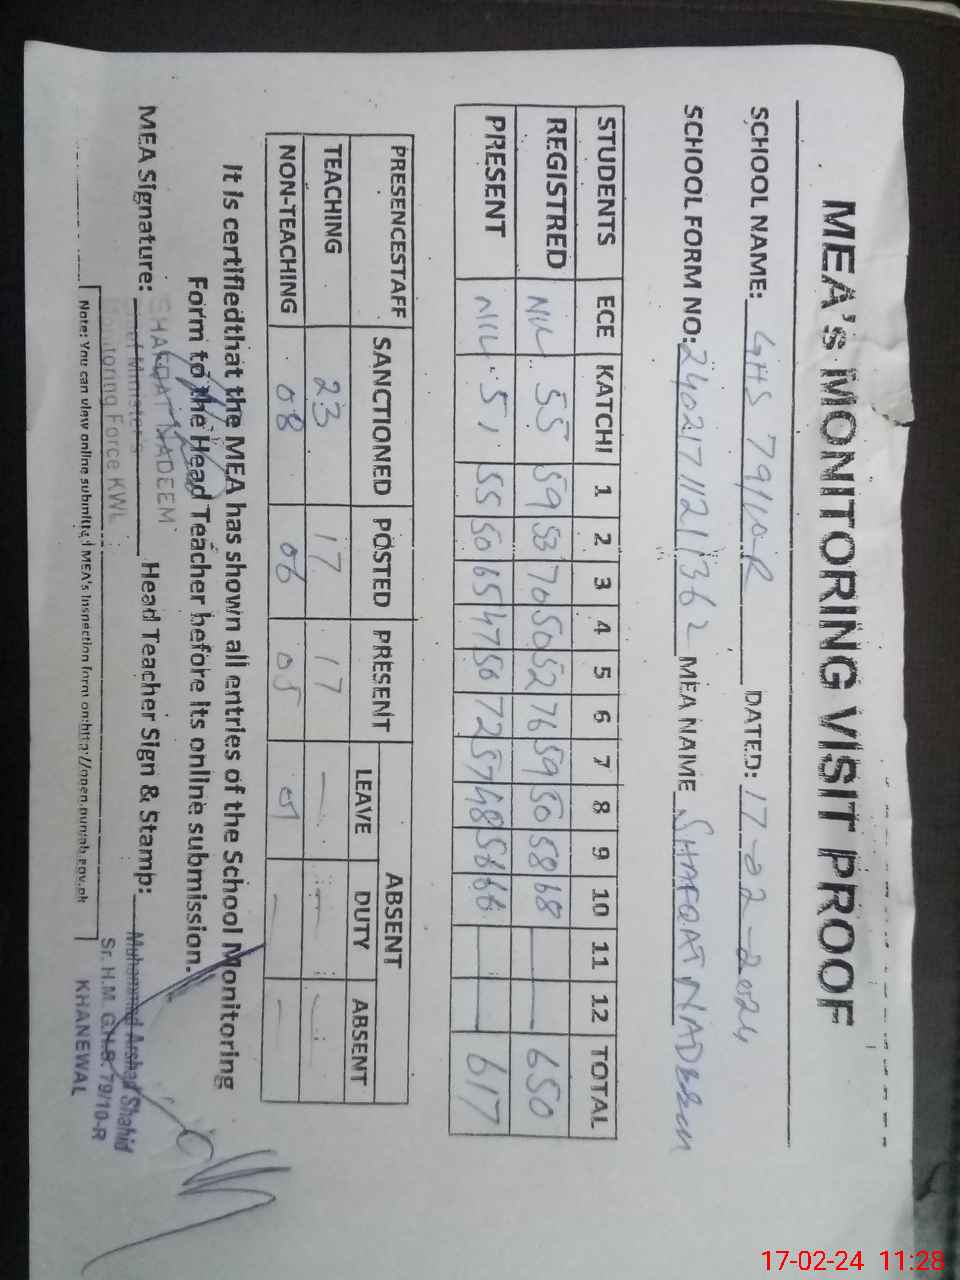 MEA's MONITORING VISIT PROOF
SCHOOL NAME: GHS 79/10-R DATED: 17-02-2024
SCHOOL FORM NO: 24021711211362 MEA NAME SHAFQAT NADEEM
STUDENTS ECE KATCHI 1 2 3 4 5 6 7 8 9 10 11 12 TOTAL
REGISTRED NIL 55 59 53 70 50 52 76 59 50 58 68 — — 650
PRESENT NIL 51 55 50 65 47 50 72 57 48 56 66 — — 617
PRESENCESTAFF SANCTIONED POSTED PRESENT ABSENT
LEAVE DUTY ABSENT
TEACHING 23 17 17 — — —
NON-TEACHING 08 06 05 01 — —
It is certifiedthat the MEA has shown all entries of the School Monitoring
Form to the Head Teacher before its online submission.
MEA Signature: Head Teacher Sign & Stamp:
SHAFQAT NADEEM
Chief Minister's
Monitoring Force KWL
Muhammad Arshad Shahid
Sr. H.M. G.H.S. 79/10-R
KHANEWAL
Note: You can view online submitted MEA's Inspection form on:http://open.punjab.gov.pk
17-02-24 11:28